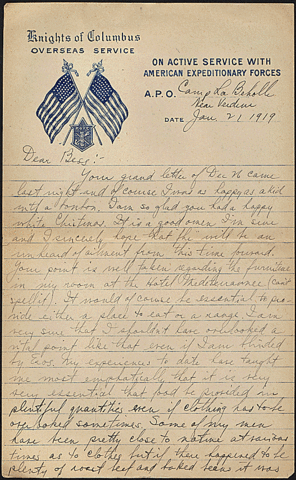 Knights of Columbus
OVERSEAS SERVICE
ON ACTIVE SERVICE WITH
AMERICAN EXPEDITIONARY FORCES
A.P.O. Camp La Beholle
Near Verdun
DATE Jan. 21 1919
Dear Bess:-
Your grand letter of Dec 26 came
last night and of course I was as happy as a kid
with a bonbon. I am so glad you had a happy
white Christmas. It is a good omen I'm sure
and I sincerely hope that flu will be an
unheard of ailment from this time forward.
Your point is well taken regarding the furniture
in my room at the Hotel Mediterranee (can't
spell it). It would of course be essential to pro-
vide either a place to eat or a range. I am
very sure that I shouldn't have overlooked a
vital point like that even if I am blinded
by Eros. My experiences to date have taught
me most emphatically that it is very
very essential that food be provided in
plentiful quantities even if clothing has to be
overlooked sometimes. Some of my men
have been pretty close to nature at various
times as to clothes but if there happened to be
plenty of roast beef and baked beans it was